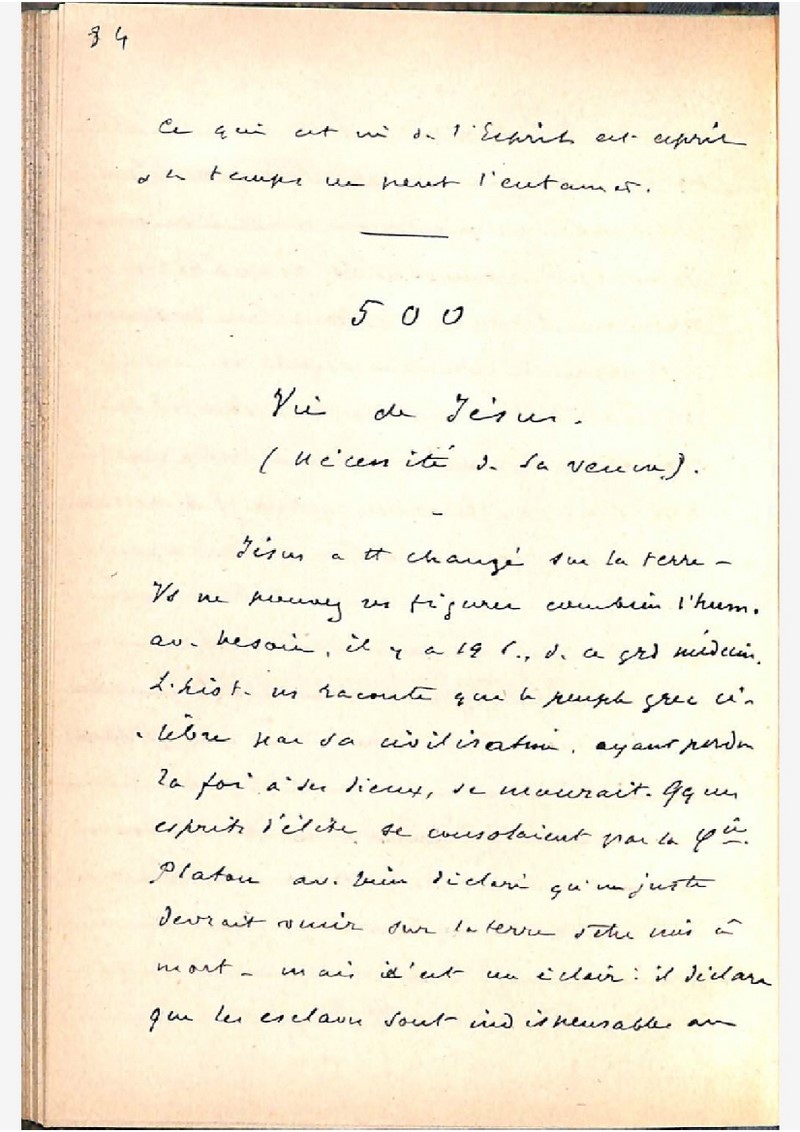 34
Ce qui est né de l'Esprit est esprit
le temps ne peut l'entamer.
500
Vie de Jésus.
(Nécessité de sa venue).
Jésus a tt changé sur la terre –
Vs ne pouvez vs figurer combien l'hum.
av. besoin, il y a 19 s., d. ce grd médecin.
L'hist. ns raconte que le peuple grec cé-
lèbre par sa civilisation, ayant perdu
la foi à ses dieux, se mourait. Qques
esprits d'élite se consolaient par la φie.
Platon av. bien déclaré qu'un juste
devrait venir sur la terre & être mis à
mort – mais c'est un éclair : il déclare
que les esclaves sont indispensables au